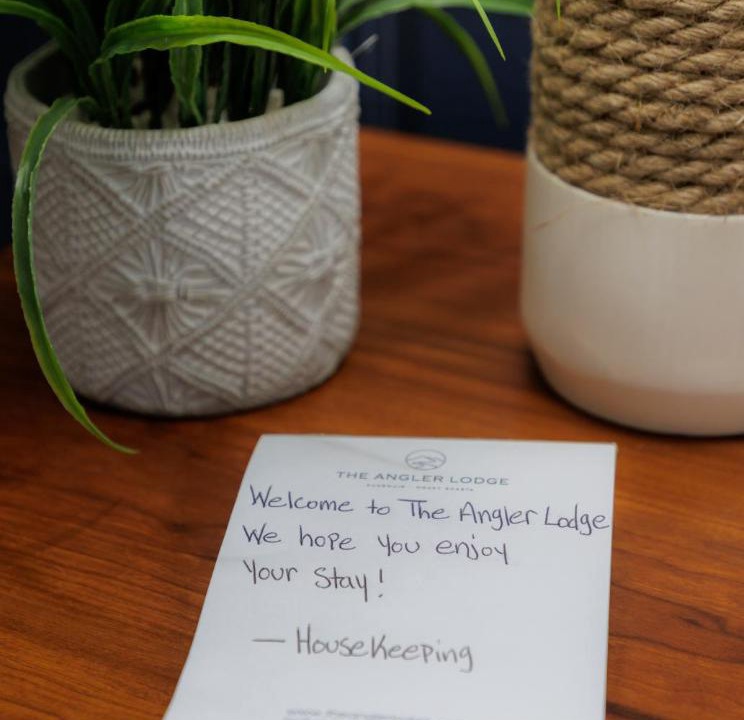 THE ANGLER LODGE
Welcome to The Angler Lodge
We hope you enjoy
Your Stay!
— Housekeeping